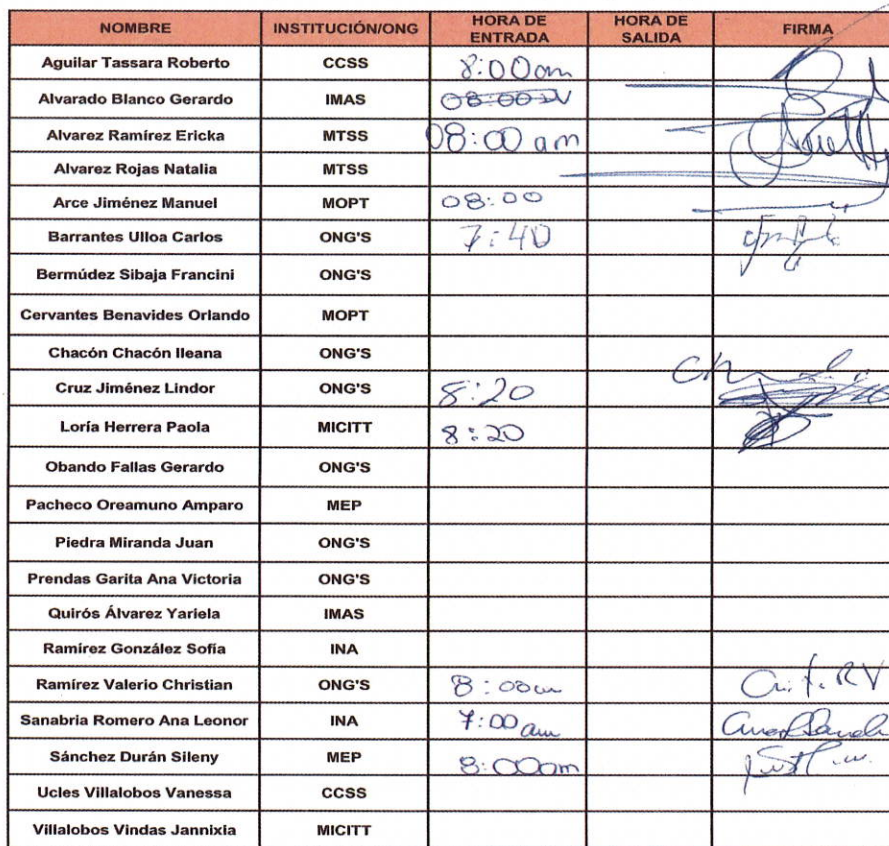 NOMBRE INSTITUCIÓN/ONG HORA DE ENTRADA HORA DE SALIDA FIRMA
Aguilar Tassara Roberto CCSS 8:00am
Alvarado Blanco Gerardo IMAS 08:00
Alvarez Ramírez Ericka MTSS 08:00 am
Alvarez Rojas Natalia MTSS
Arce Jiménez Manuel MOPT 08:00
Barrantes Ulloa Carlos ONG'S 7:40
Bermúdez Sibaja Francini ONG'S
Cervantes Benavides Orlando MOPT
Chacón Chacón Ileana ONG'S
Cruz Jiménez Lindor ONG'S 8:20
Loría Herrera Paola MICITT 8:20
Obando Fallas Gerardo ONG'S
Pacheco Oreamuno Amparo MEP
Piedra Miranda Juan ONG'S
Prendas Garita Ana Victoria ONG'S
Quirós Álvarez Yariela IMAS
Ramírez González Sofía INA
Ramírez Valerio Christian ONG'S 8:00am RV
Sanabria Romero Ana Leonor INA 7:00 am
Sánchez Durán Sileny MEP 8:00am
Ucles Villalobos Vanessa CCSS
Villalobos Vindas Jannixia MICITT